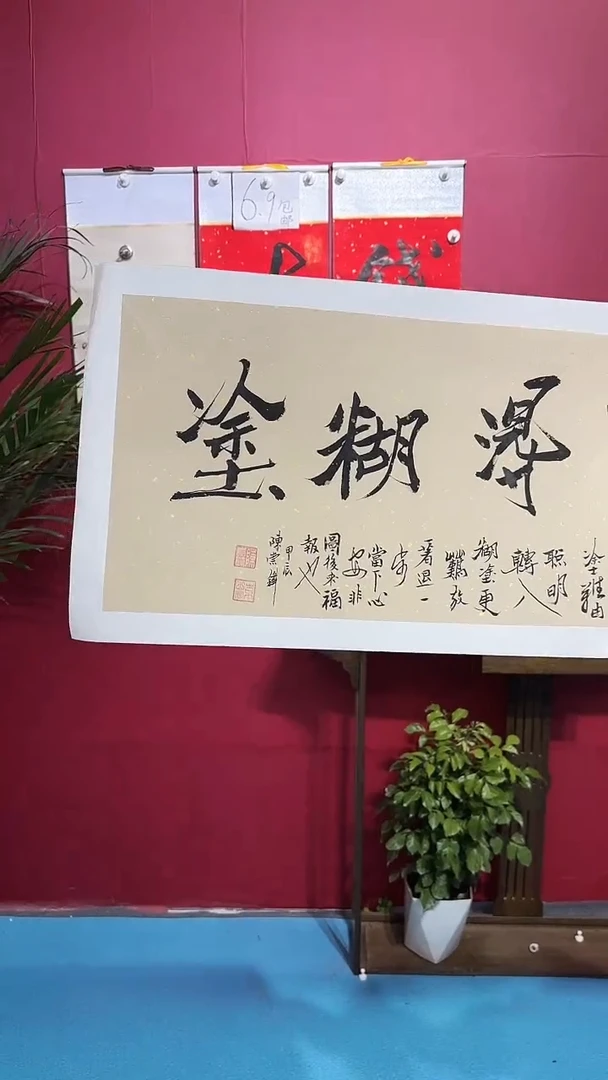 6.9包邮
得糊塗
塗難由
聰明
轉入
糊塗更
難放
一著退一
步
當下心
安非
圖後來福
報也
甲辰
陳